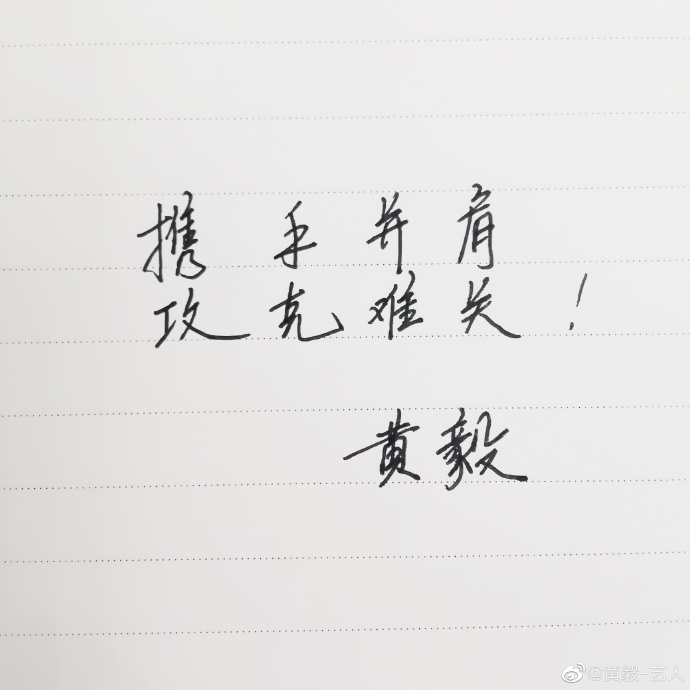 携手并肩
攻克难关!
黄毅
@黄毅-艺人